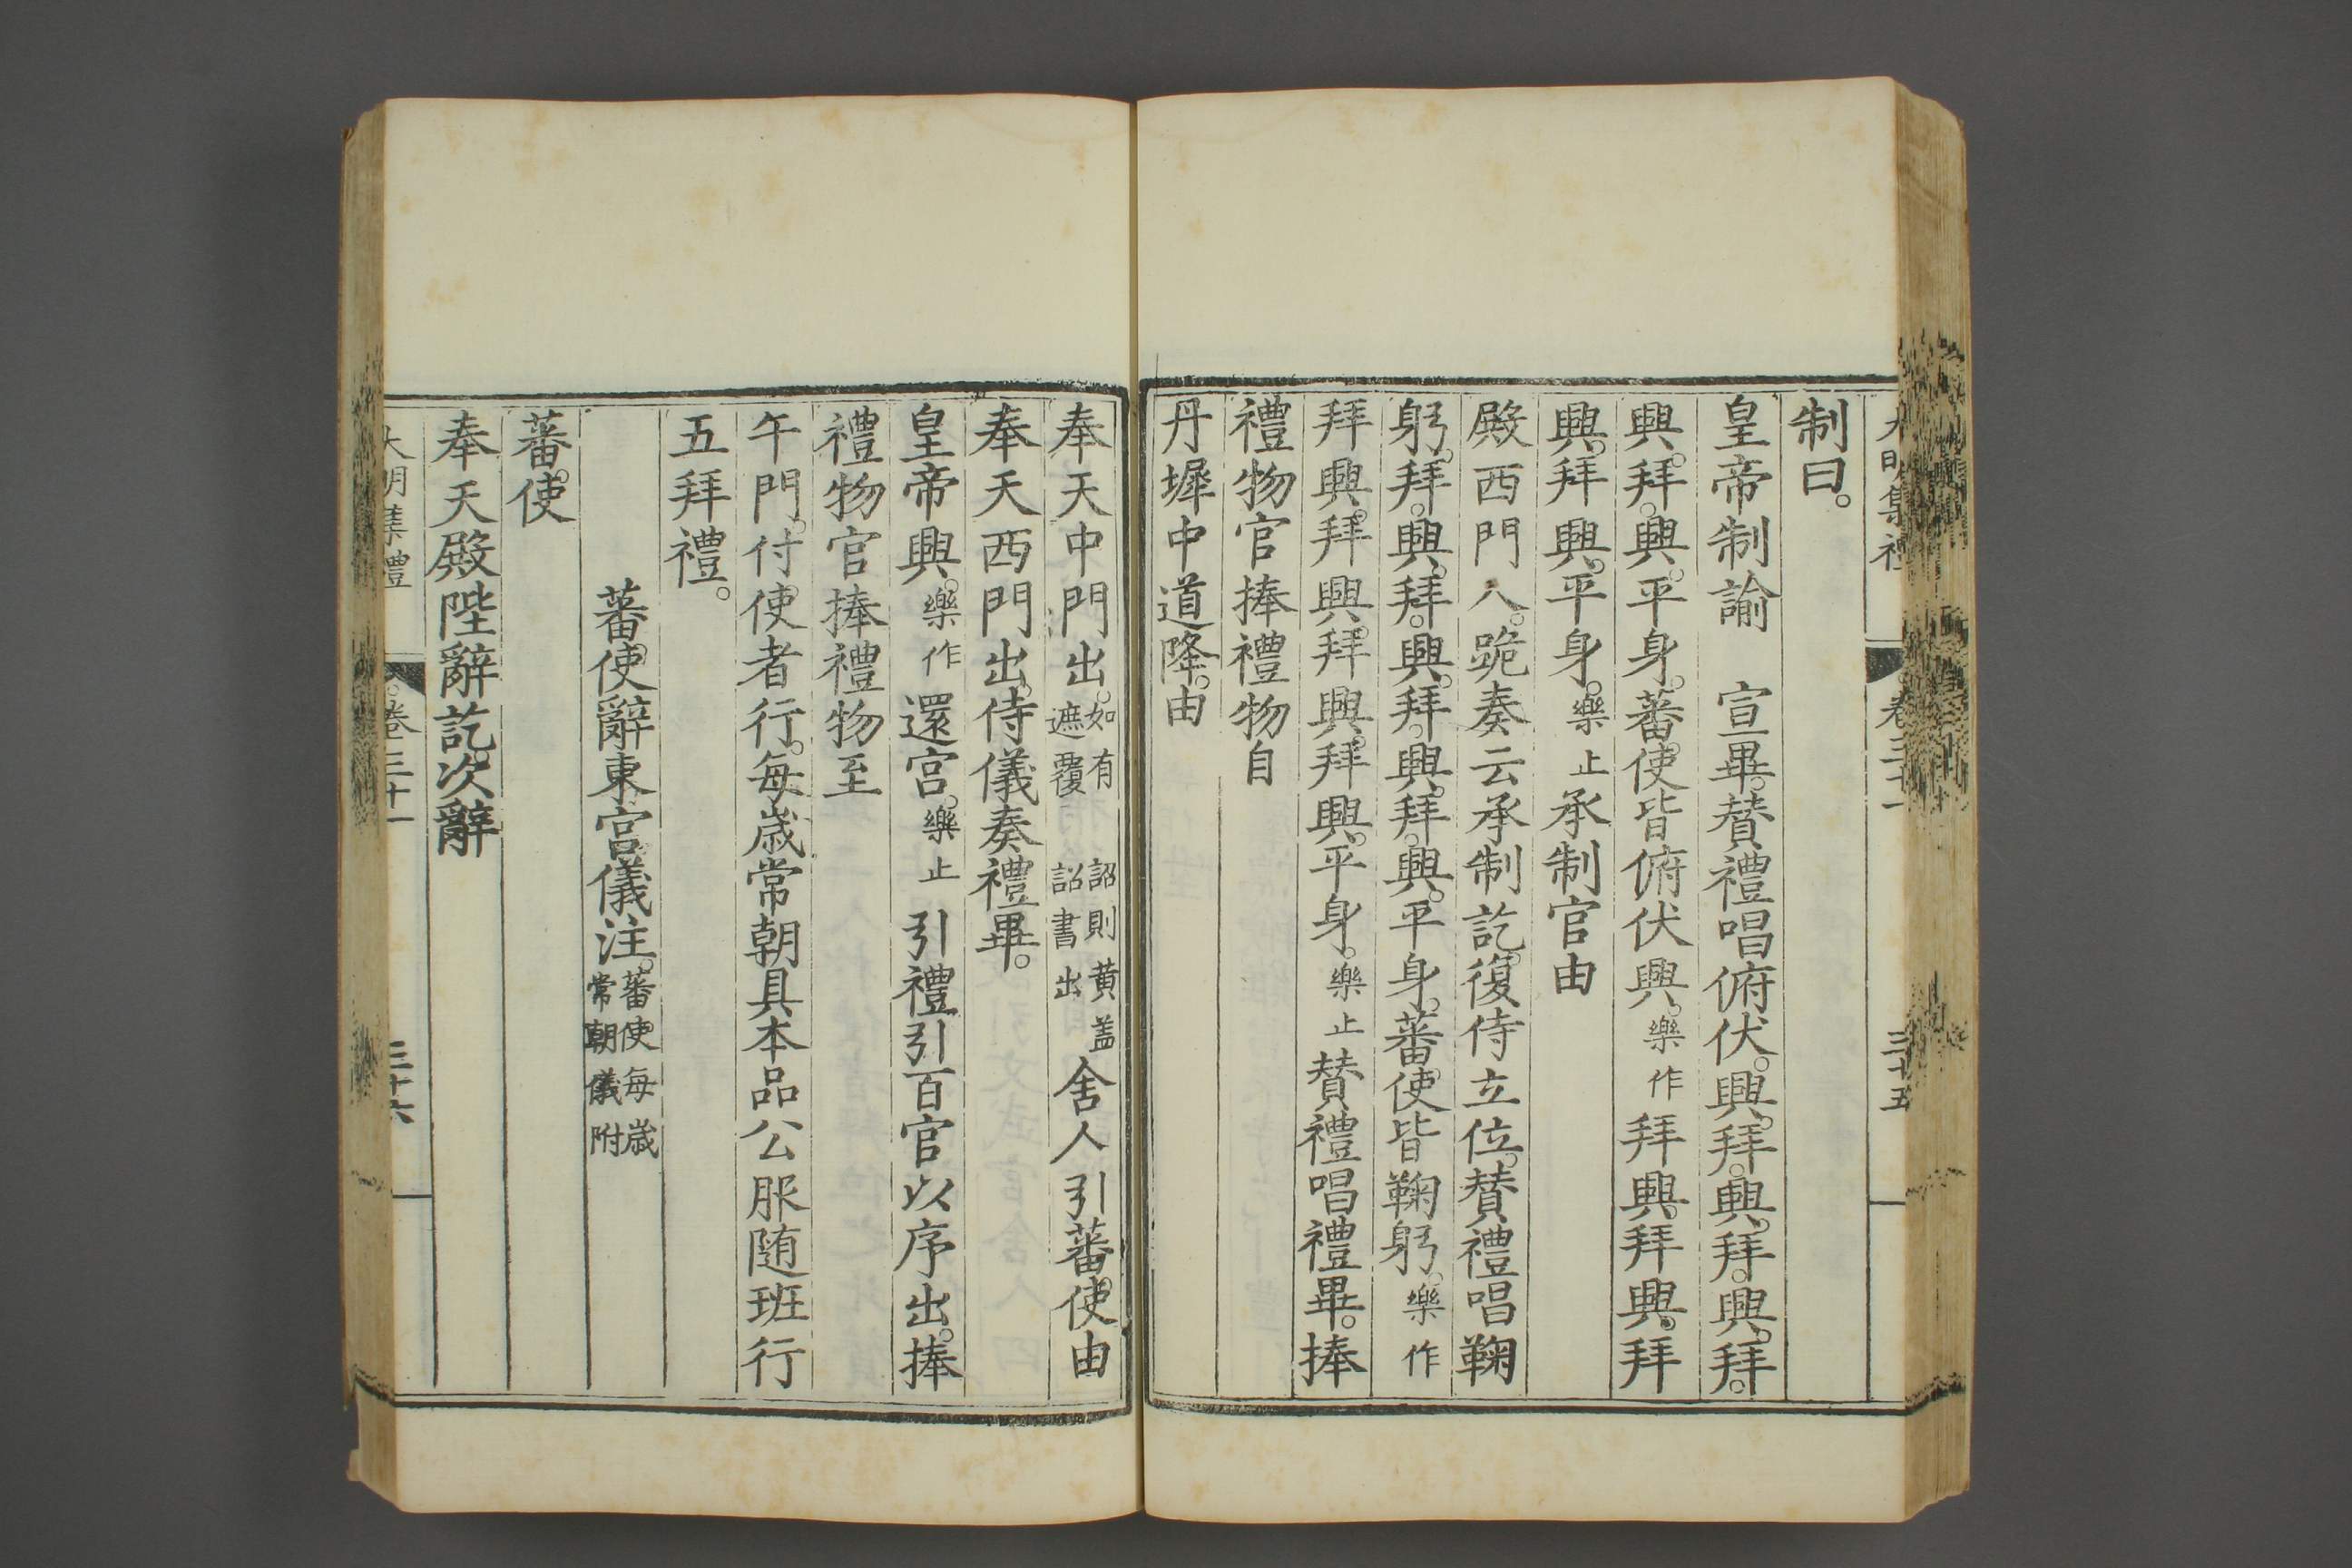 大明集禮 卷三十一 三十五
制曰。
皇帝制諭 宣畢。賛禮唱俯伏。興。拜。興。拜。興。拜。
興。拜。興。平身。蕃使皆俯伏興。樂作拜興。拜興。拜
興。拜興。平身。樂止承制官由
殿西門入。跪奏云承制訖。復侍立位。賛禮唱鞠
躬。拜。興。拜。興。拜。興。拜。興。平身。蕃使皆鞠躬。樂作
拜興。拜興。拜興。拜興。平身。樂止賛禮唱禮畢。捧
禮物官捧禮物自
丹墀中道降。由
奉天中門出。如有詔則黄盖遮覆詔書出舍人引蕃使由
奉天西門出。侍儀奏禮畢。
皇帝興。樂作還宫。樂止引禮引百官以序出。捧
禮物官捧禮物至
午門。付使者行。每歳常朝具本品公服随班行
五拜禮。
蕃使辭東宫儀注。蕃使每歳常朝儀附
蕃使
奉天殿陛辭訖。次辭
大明集禮 卷三十一 三十六